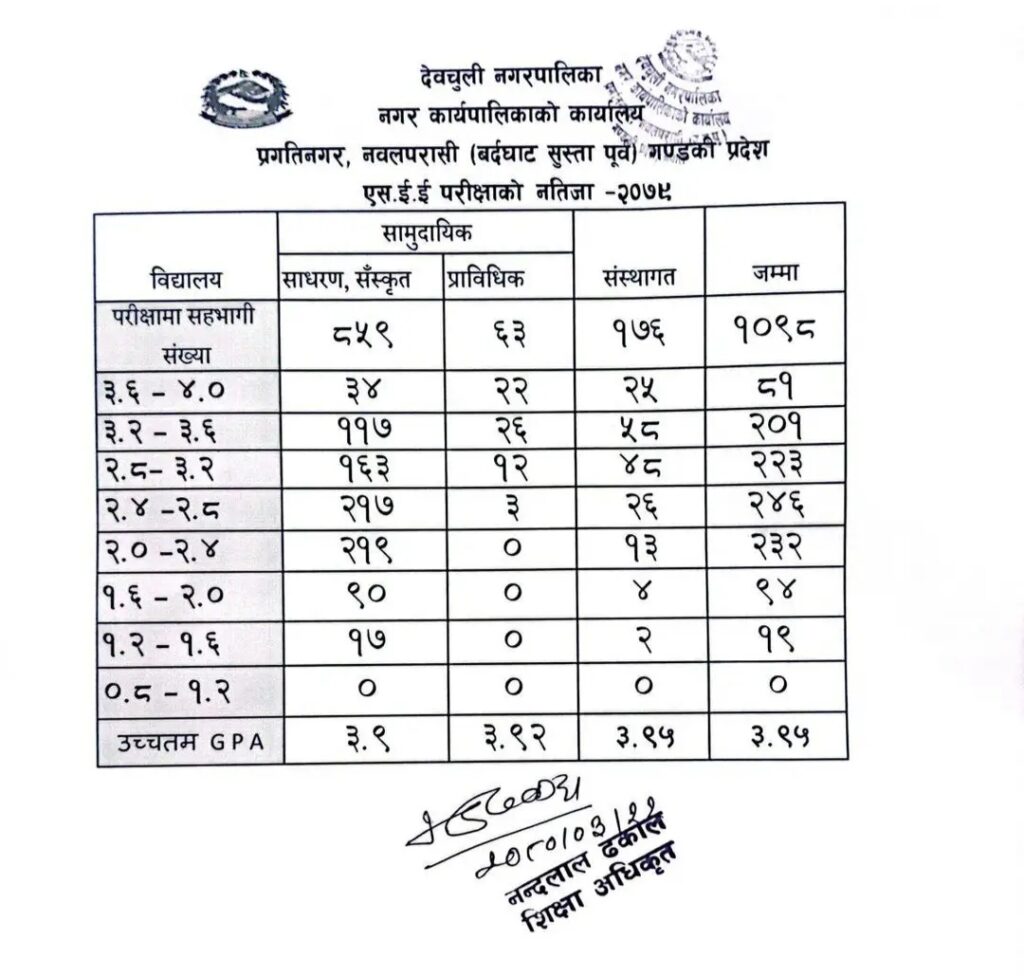 देवचुली नगरपालिका
नगर कार्यपालिकाको कार्यालय
प्रगतिनगर, नवलपरासी (बर्दघाट सुस्ता पूर्व) गण्डकी प्रदेश
एस.ई.ई परीक्षाको नतिजा -२०७९
देवचुली नगरपालिका
नगर कार्यपालिकाको कार्यालय
विद्यालय सामुदायिक संस्थागत जम्मा
साधरण, सँस्कृत प्राविधिक
परीक्षामा सहभागी संख्या ८५९ ६३ १७६ १०९८
३.६ - ४.० ३४ २२ २५ ८१
३.२ - ३.६ ११७ २६ ५८ २०१
२.८- ३.२ १६३ १२ ४८ २२३
२.४ -२.८ २१७ ३ २६ २४६
२.० -२.४ २१९ ० १३ २३२
१.६ - २.० ९० ० ४ ९४
१.२ - १.६ १७ ० २ १९
०.८ - १.२ ० ० ० ०
उच्चतम GPA ३.९ ३.९२ ३.९५ ३.९५
२०८०/०३/२२
नन्दलाल ढकाल
शिक्षा अधिकृत